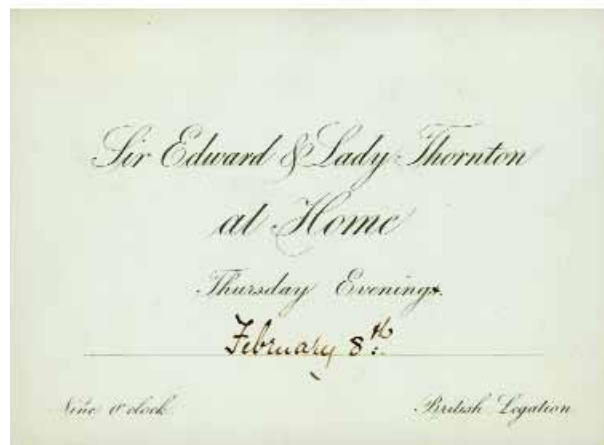 Sir Edward & Lady Thornton
at Home
Thursday Evenings.
February 8th.
Nine o'clock British Legation